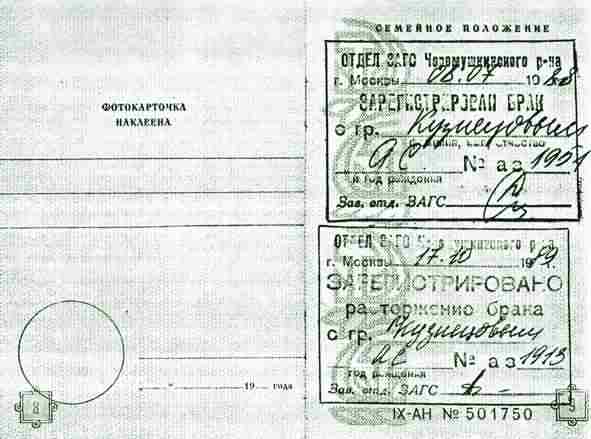 ФОТОКАРТОЧКА
НАКЛЕЕНА
19 года
8
СЕМЕЙНОЕ ПОЛОЖЕНИЕ
ОТДЕЛ ЗАГС Черемушкинского р-на
г. Москвы 08.07 1988
ЗАРЕГИСТРИРОВАН БРАК
с гр. Кузнецовым
фамилия, имя, отчество
А С. № а з 1954
и год рождения
Зав. отд. ЗАГС
ОТДЕЛ ЗАГС Черемушкинского р-на
г. Москвы 17.10 1989
ЗАРЕГИСТРИРОВАНО
расторжение брака
с гр. Кузнецовым
АС № а з 1913
год рождения
Зав. отд. ЗАГС
IX-АН № 501750
9